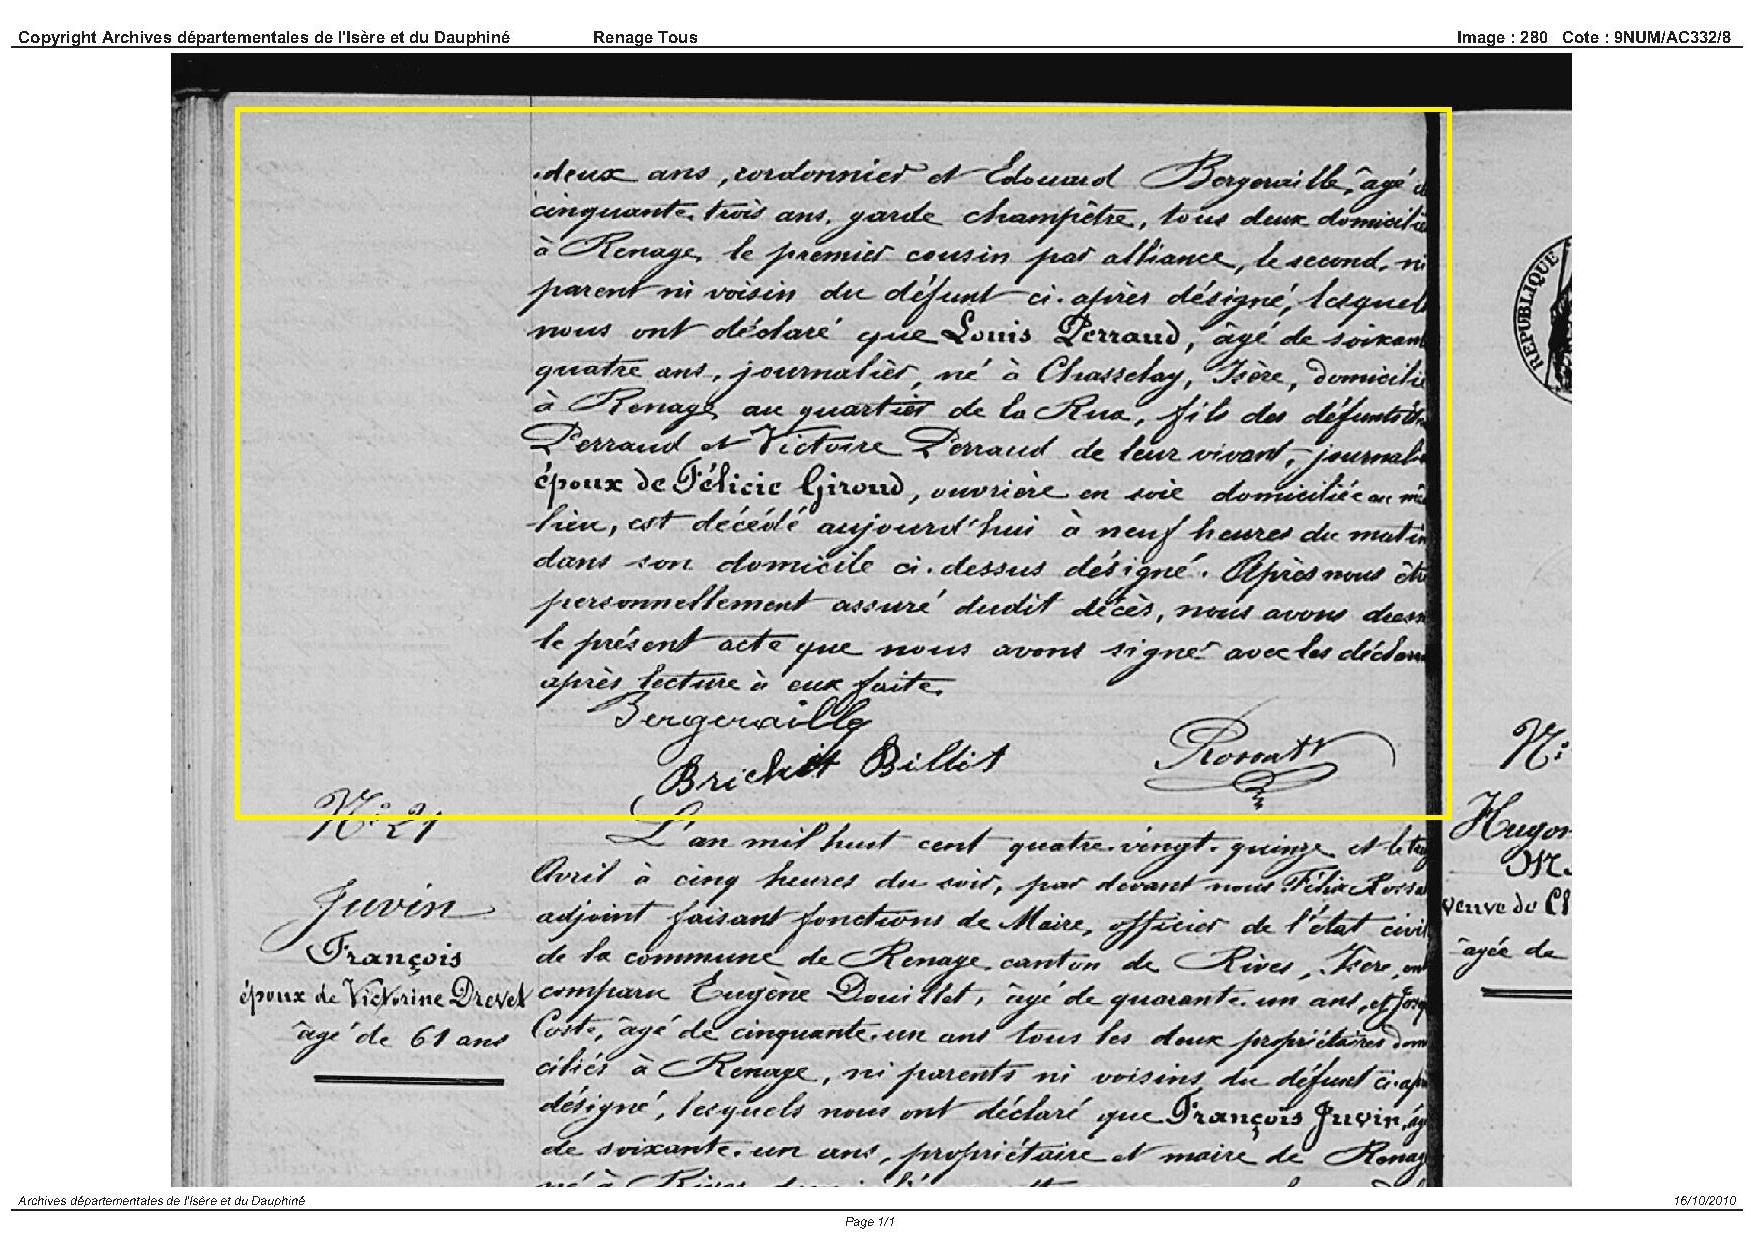 Copyright Archives départementales de l'Isère et du Dauphiné Renage Tous Image : 280 Cote : 9NUM/AC332/8
deux ans, cordonnier et Edouard Bergeraille, âgé de
cinquante-trois ans, garde champêtre, tous deux domicilié
à Renage, le premier cousin par alliance, le second, ni
parent ni voisin du défunt ci-après désigné, lesquels
nous ont déclaré que Louis Perraud, âgé de soixant
quatre ans, journalier, né à Chasselay, Isère, domicilié
à Renage au quartier de la Rua, fils des défunts
Perraud et Victoire Perraud de leur vivant, journali
époux de Félicie Giroud, ouvrière en soie domiciliée au mê
lieu, est décédé aujourd'hui à neuf heures du matin
dans son domicile ci-dessus désigné. Après nous être
personnellement assuré dudit décès, nous avons dress
le présent acte que nous avons signé avec les déclara
après lecture à eux faite.
Bergeraille
Brichet Billiet
REPUBLIQUE
N° 21
Juvin
François
époux de Victorine Drevet
âgé de 61 ans
L'an mil huit cent quatre-vingt-quinze et le
Avril à cinq heures du soir, par devant nous Félix
adjoint faisant fonctions de Maire, officier de l'état civil
de la commune de Renage, canton de Rives, Isère, ont
comparu Eugène Douillet, âgé de quarante-un ans, et
Coste, âgé de cinquante-un ans tous les deux propriétaires dom
ciliés à Renage, ni parents ni voisins du défunt ci-apr
désigné, lesquels nous ont déclaré que François Juvin, âg
de soixante-un ans, propriétaire et maire de Renage
né à Rives
N°
Hugon
M.
veuve de Cl
âgée de
Archives départementales de l'Isère et du Dauphiné 16/10/2010
Page 1/1